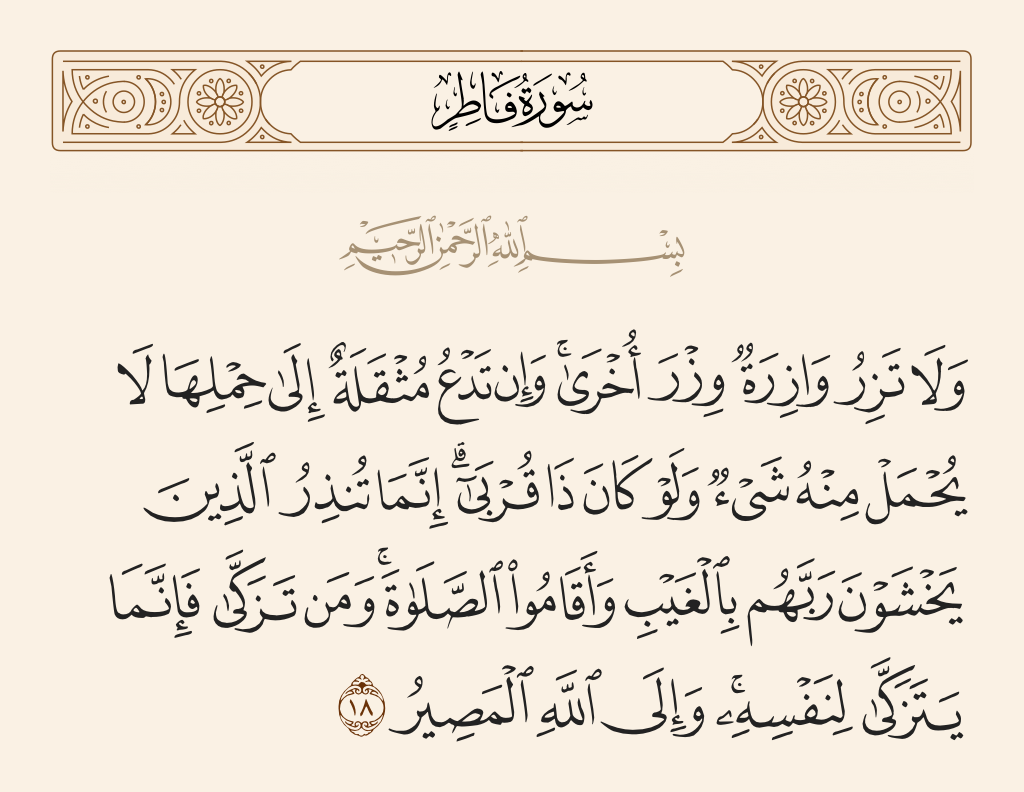 سُورَةُ فَاطِرٍ
بِسْمِ ٱللَّهِ ٱلرَّحْمَٰنِ ٱلرَّحِيمِ
وَلَا تَزِرُ وَازِرَةٌ وِزْرَ أُخْرَىٰۚ وَإِن تَدْعُ مُثْقَلَةٌ إِلَىٰ حِمْلِهَا لَا
يُحْمَلْ مِنْهُ شَىْءٌ وَلَوْ كَانَ ذَا قُرْبَىٰٓۗ إِنَّمَا تُنذِرُ ٱلَّذِينَ
يَخْشَوْنَ رَبَّهُم بِٱلْغَيْبِ وَأَقَامُوا۟ ٱلصَّلَوٰةَۚ وَمَن تَزَكَّىٰ فَإِنَّمَا
يَتَزَكَّىٰ لِنَفْسِهِۦۚ وَإِلَى ٱللَّهِ ٱلْمَصِيرُ ١٨